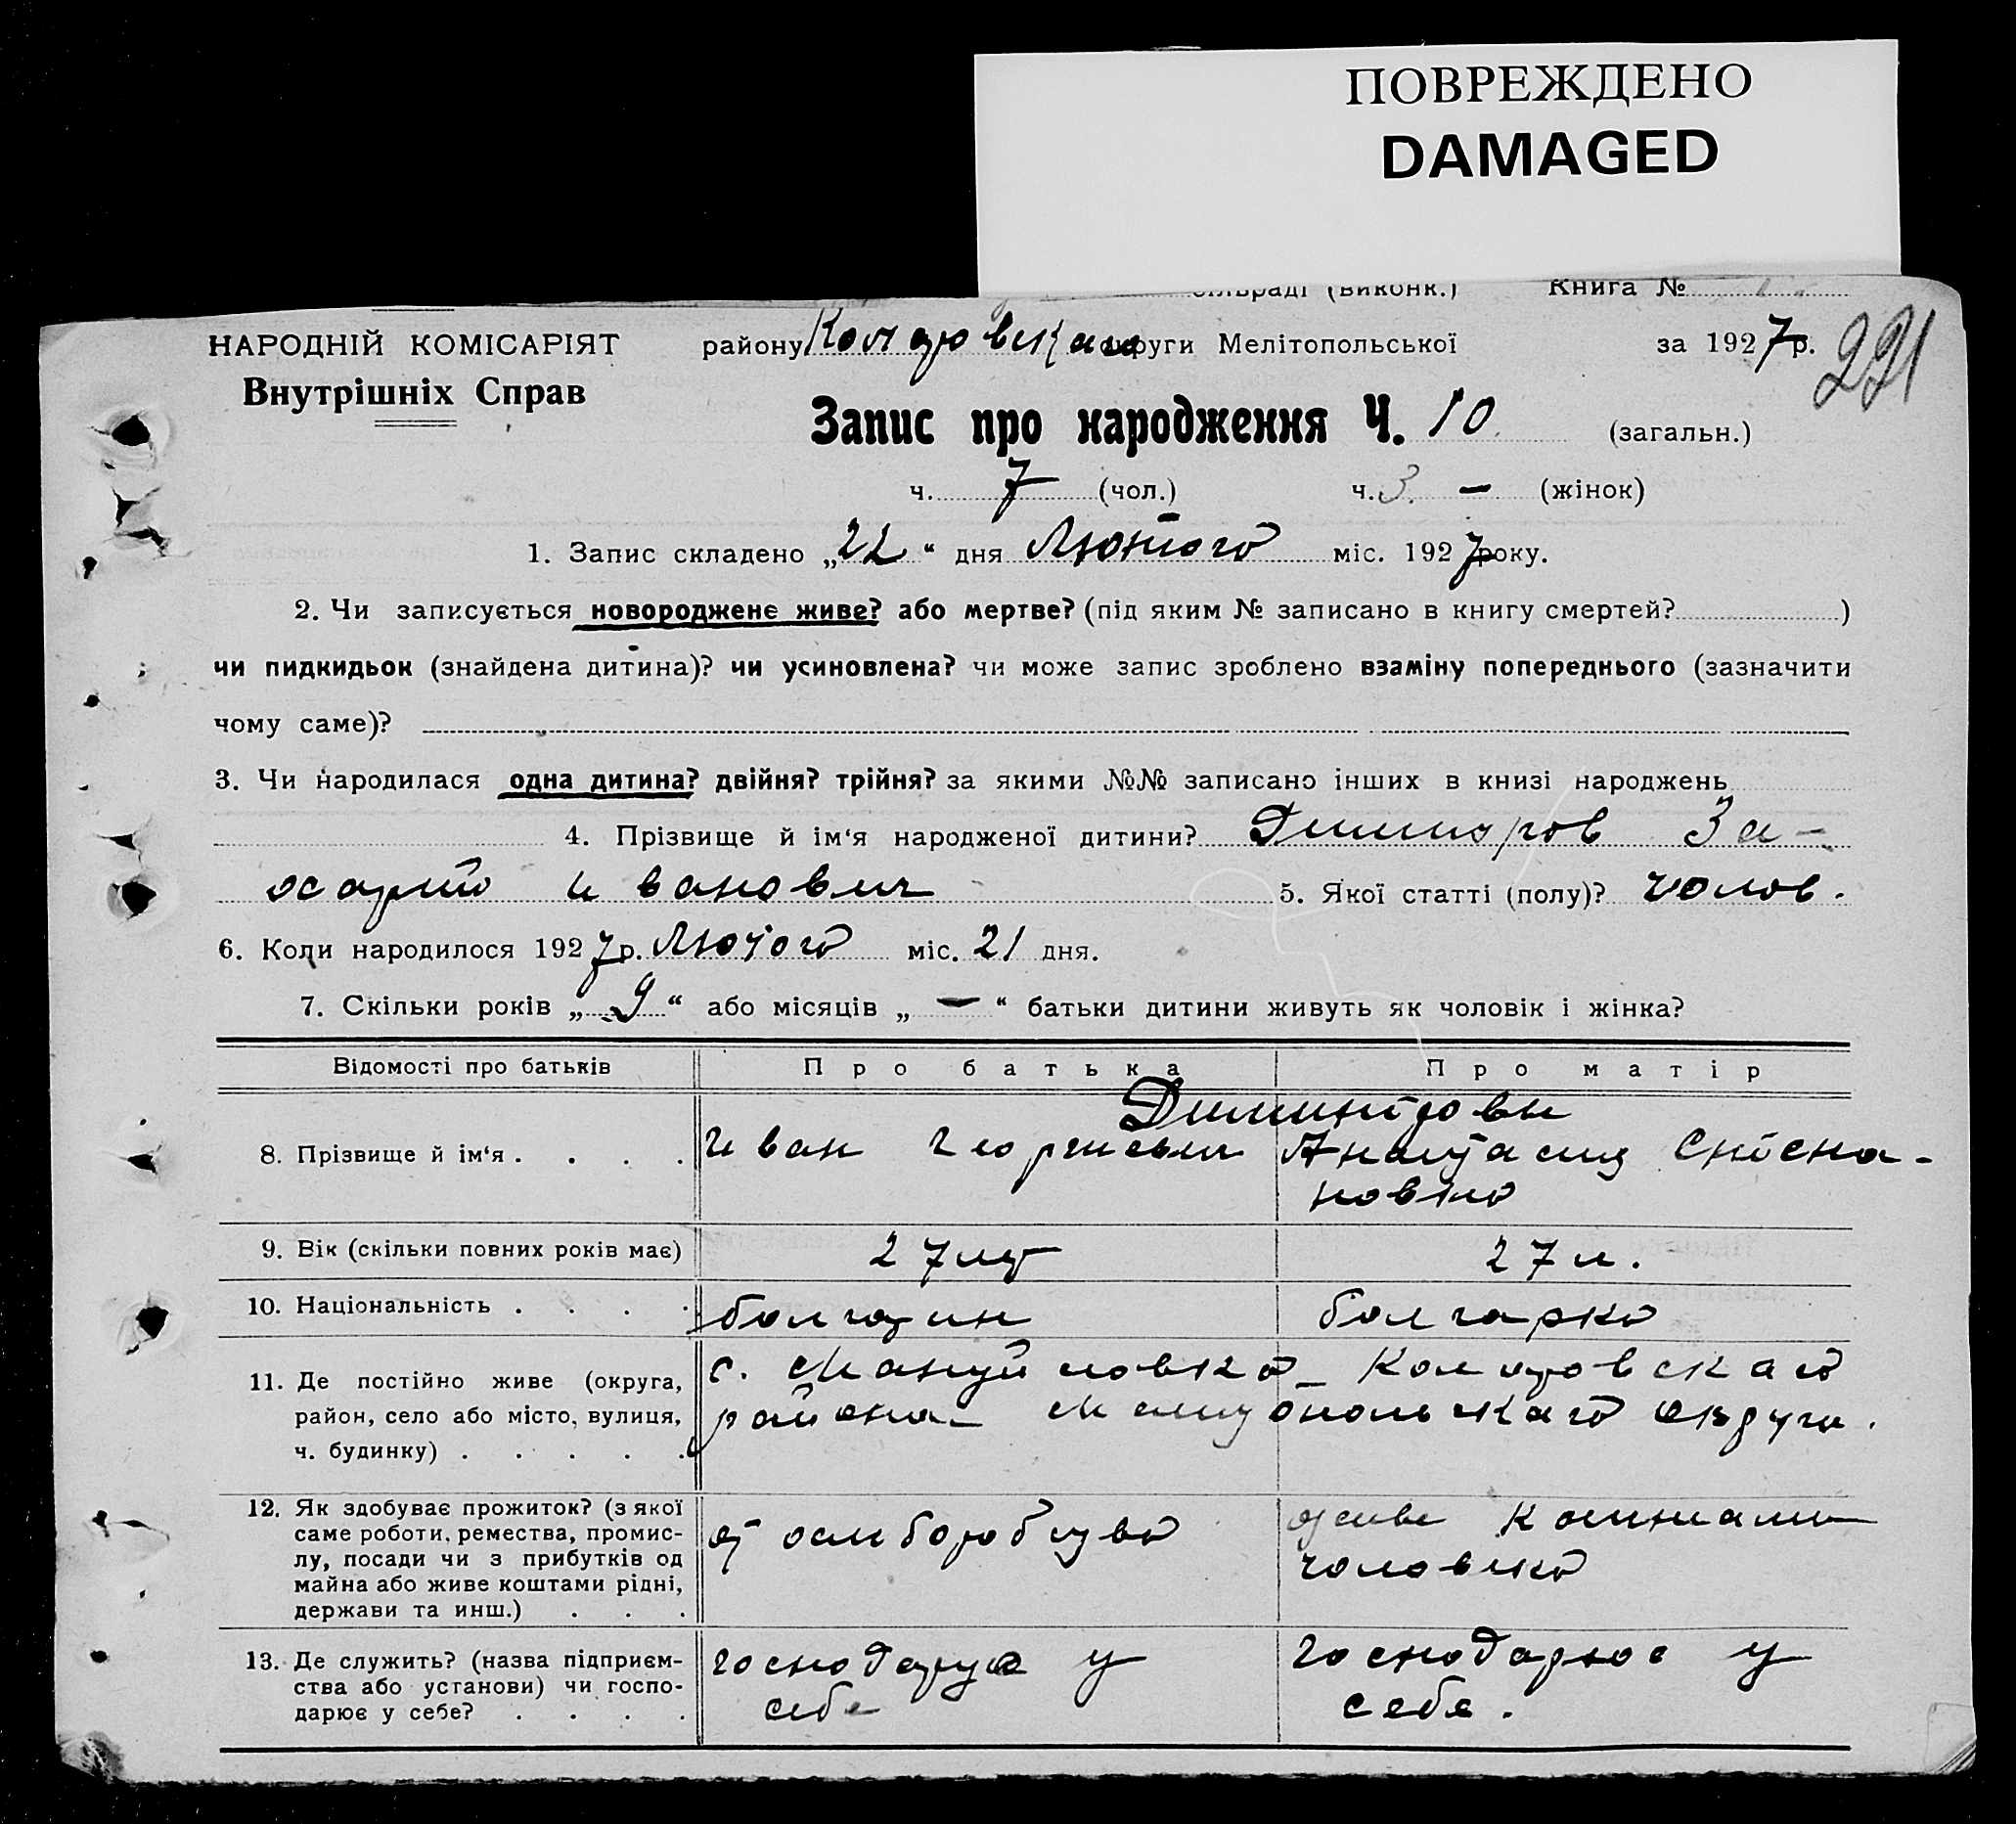 ПОВРЕЖДЕНО
DAMAGED
сільраді (виконк.) Книга №
НАРОДНІЙ КОМІСАРІЯТ району округи Мелітопольської за 1927 р. 291
Внутрішніх Справ
Запис про народження Ч. 10 (загальн.)
ч. 7 (чол.) ч. 3. — (жінок)
1. Запис складено „22“ дня Лютого міс. 1927 року.
2. Чи записується новороджене живе? або мертве? (під яким № записано в книгу смертей? )
чи пидкидьок (знайдена дитина)? чи усиновлена? чи може запис зроблено взаміну попереднього (зазначити
чому саме)?
3. Чи народилася одна дитина? двійня? трійня? за якими №№ записано інших в книзі народжень
4. Прізвище й ім‘я народженої дитини? Димитров За-
харій Иванович 5. Якої статті (полу)? чолов.
6. Коли народилося 1927 р. Лютого міс. 21 дня.
7. Скільки років „9“ або місяців „—“ батьки дитини живуть як чоловік і жінка?
Відомості про батьків Про батька Про матір
Димитровы
8. Прізвище й ім‘я . . . . Иван Георгиевич Анастасия Степа-
новна
9. Вік (скільки повних років має) 27 лет 27 л.
10. Національність . . . . болгарин болгарка
11. Де постійно живе (округа, с. Мануйловка
район, село або місто, вулиця, района округи.
ч. будинку) . . . . .
12. Як здобуває прожиток? (з якої
саме роботи, ремества, промис- живе коштами
лу, посади чи з прибутків од чоловіка
майна або живе коштами рідні,
держави та инш.) . . .
13. Де служить? (назва підприєм- господарює у господарює у
ства або установи) чи госпо- себе себе.
дарює у себе? . . . .